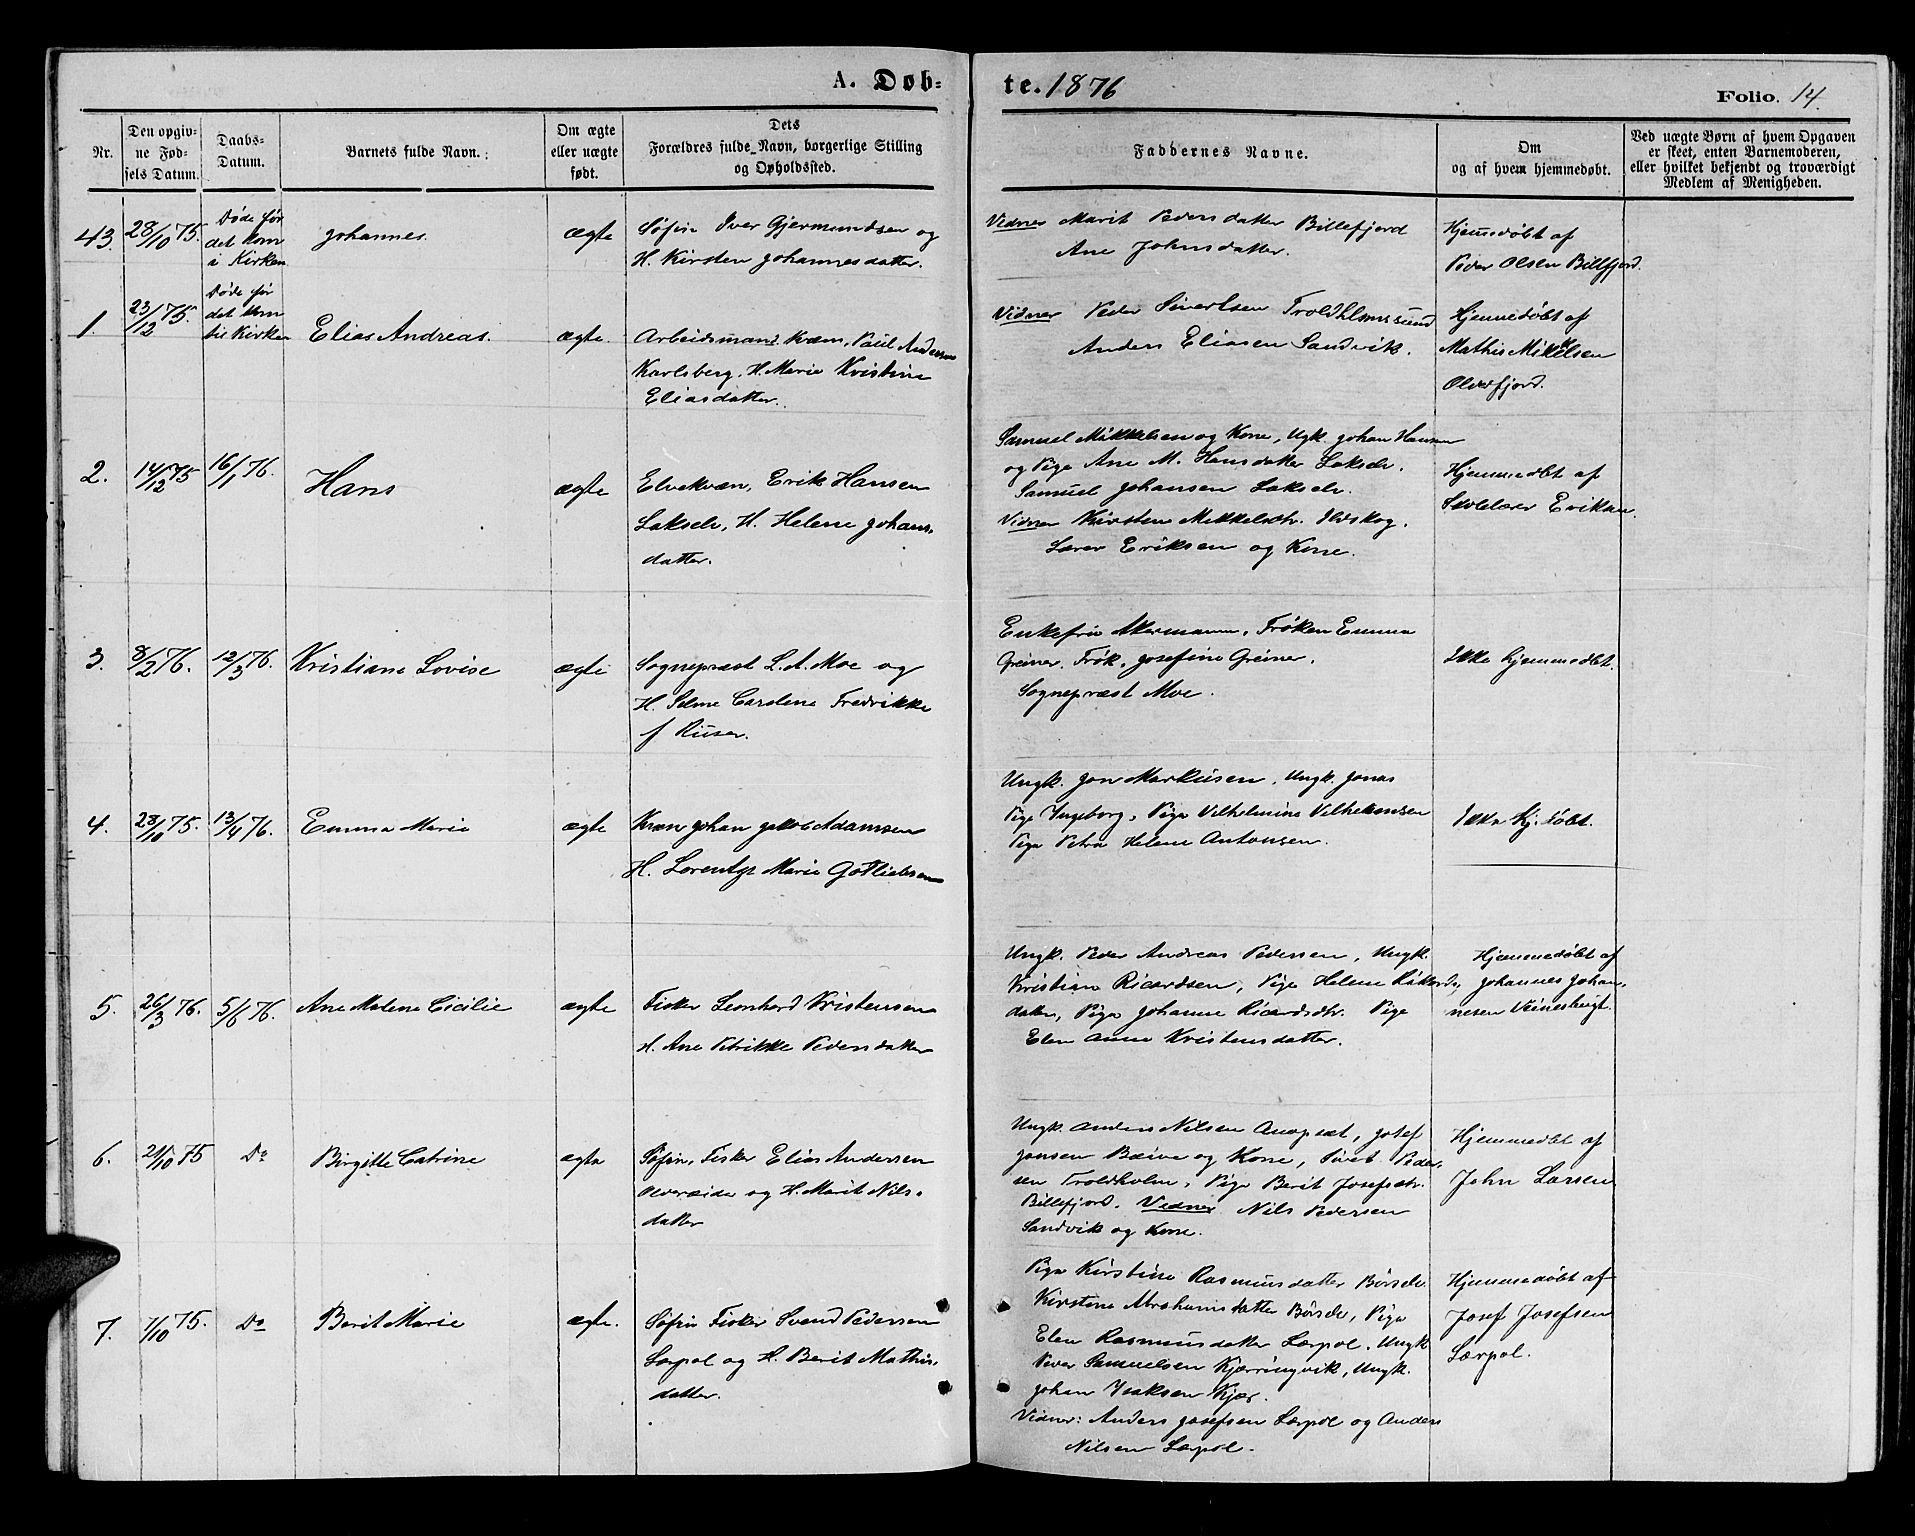 A. Døb=
te. 1876
Folio. 14.
Nr.
Den opgiv-
ne Fød-
sels Datum.
Daabs-
Datum.
Barnets fulde Navn.
Om ægte
eller uægte
født.
Dets
Forældres fulde Navn, borgerlige Stilling
og Opholdssted.
Faddernes Navne.
Om
og af hvem hjemmedøbt.
Ved uægte Børn af hvem Opgaven
er skeet, enten Barnemoderen,
eller hvilket bekjendt og troværdigt
Medlem af Menigheden.
43
28/10 75.
Døde før
det kom
i Kirken
Johannes.
ægte
Søfin Iver Gjermundsen og
H. Kirsten Johannesdatter.
Vidner Marit Pedersdatter Billefjord
Ane Johnsdatter.
Hjemmedøbt af
Peder Olsen Billfjord.
1.
23/12 75.
Døde før
det kom
til Kirken
Elias Andreas.
ægte.
Arbeidsmand Kvæn, Paul Andersen
Karlsberg. H. Maria Kristine
Eliasdatter.
Vidner Peder Sivertsen Troldholmssund
Anders Eliasen Sandvik.
Hjemmedøbt af
Mathis Mikkelsen
Olderfjord.
2.
14/12 75
16/1 76.
Hans
ægte
Elvekvæn, Erik Hansen
Lakselv, H. Helene Johans-
datter.
Samuel Mikkelsen og Kone, Ugk. Johan Hansen
og Pige Ane M. Hansdatter Lakselv.
Samuel Johansen Lakselv.
Vidner Kirsten Mikkelsdtr. Ildskog.
Lærer Eriksen og Kone.
Hjemmedøbt af
Skolelærer Eriksen.
3.
8/2 76.
12/3 76.
Kristiane Lovise
ægte
Sognepræst L. A. Moe og
H. Selma Carolina Fredrikke
f Ruser.
Enkefru Akermann, Frøken Emma
Greiner, Frøk. Josefine Greiner.
Sognepræst Moe.
Ikke hjemmedøbt.
4.
28/10 75.
13/4 76.
Emma Marie
ægte
Kvæn Johan Jakob Adamsen
H. Lorentze Marie Gotliebsen
Ungk. Jon Markusen, Ungk. Jonas
Pige Ingeborg, Pige Vilhelmine Vilhelmsen
Pige Petra Helene Antonsen.
Ikke Hj. døbt.
5.
26/3 76.
5/6 76.
Ane Malene Cicilie
ægte
Fisker Leonhard Kristensen
H. Ane Petrikke Pedersdatter
Ungk. Peder Andreas Pedersen, Ungk.
Kristian Ricardsen, Pige Helene Rikards-
datter, Pige Johanne Ricardsdtr. Pige
Elen Anna Kristensdatter.
Hjemmedøbt af
Johannes Johan-
nesen Veinesbugt.
6.
21/10 75
Do
Birgitte Catrine
ægte
Søfin, Fisker Elias Andersen
Oldereide og H. Marit Nils-
datter
Ungk. Anders Nilsen Anopset, Josef
Jonsen Bæive og Kone, Sivert Peder-
sen Troldholm, Pige Berit Josefsdtr.
Billefjord. Vidner Nils Pedersen
Sandvik og Kone.
Hjemmedøbt af
John Larsen
7.
7/10 75.
Do
Berit Marie
ægte.
Søfin Fisker Svend Pedersen
Lærpol og H. Berit Mathis-
datter.
Pige Kirstine Rasmusdatter Børselv
Kirstine Abrahamsdatter Børselv, Pige
Elen Rasmusdatter Lærpol, Ungk
Peder Samuelsen Kjærringvik, Ungk.
Johan Isaksen Kjær.
Vidner: Anders Josefsen Lærpol og Anders
Nilsen Lærpol.
Hjemmedøbt af
Josef Josefsen
Lærpol.